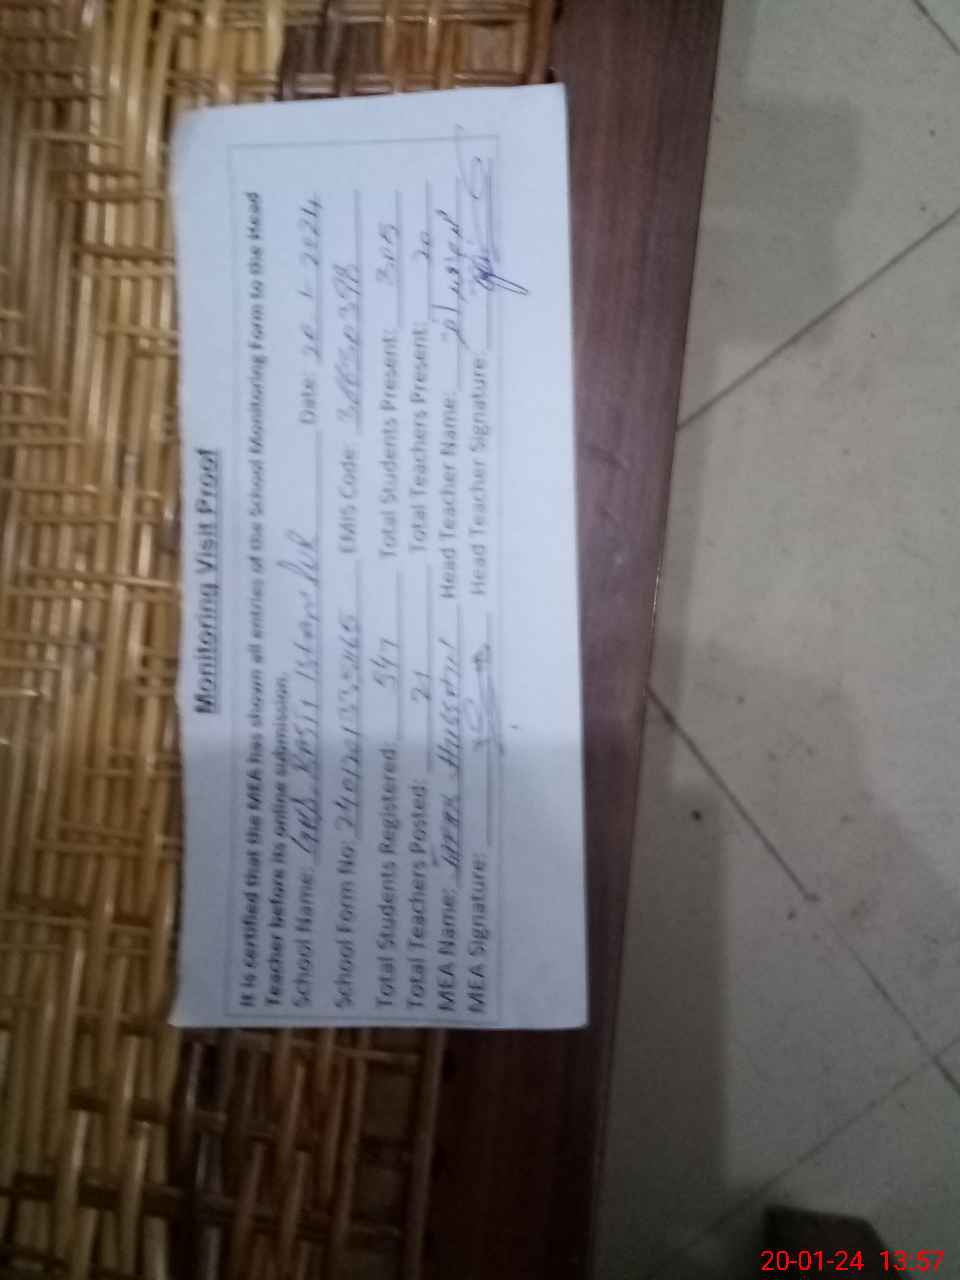 Monitoring Visit Proof
It is certified that the MEA has shown all entries of the School Monitoring Form to the Head
Teacher before its online submission.
School Name: Date: 20-1-2024
School Form No: EMIS Code:
Total Students Registered: 547 Total Students Present: 305
Total Teachers Posted: 21 Total Teachers Present: 20
MEA Name: Hussain Head Teacher Name:
MEA Signature: Head Teacher Signature:
20-01-24 13:57